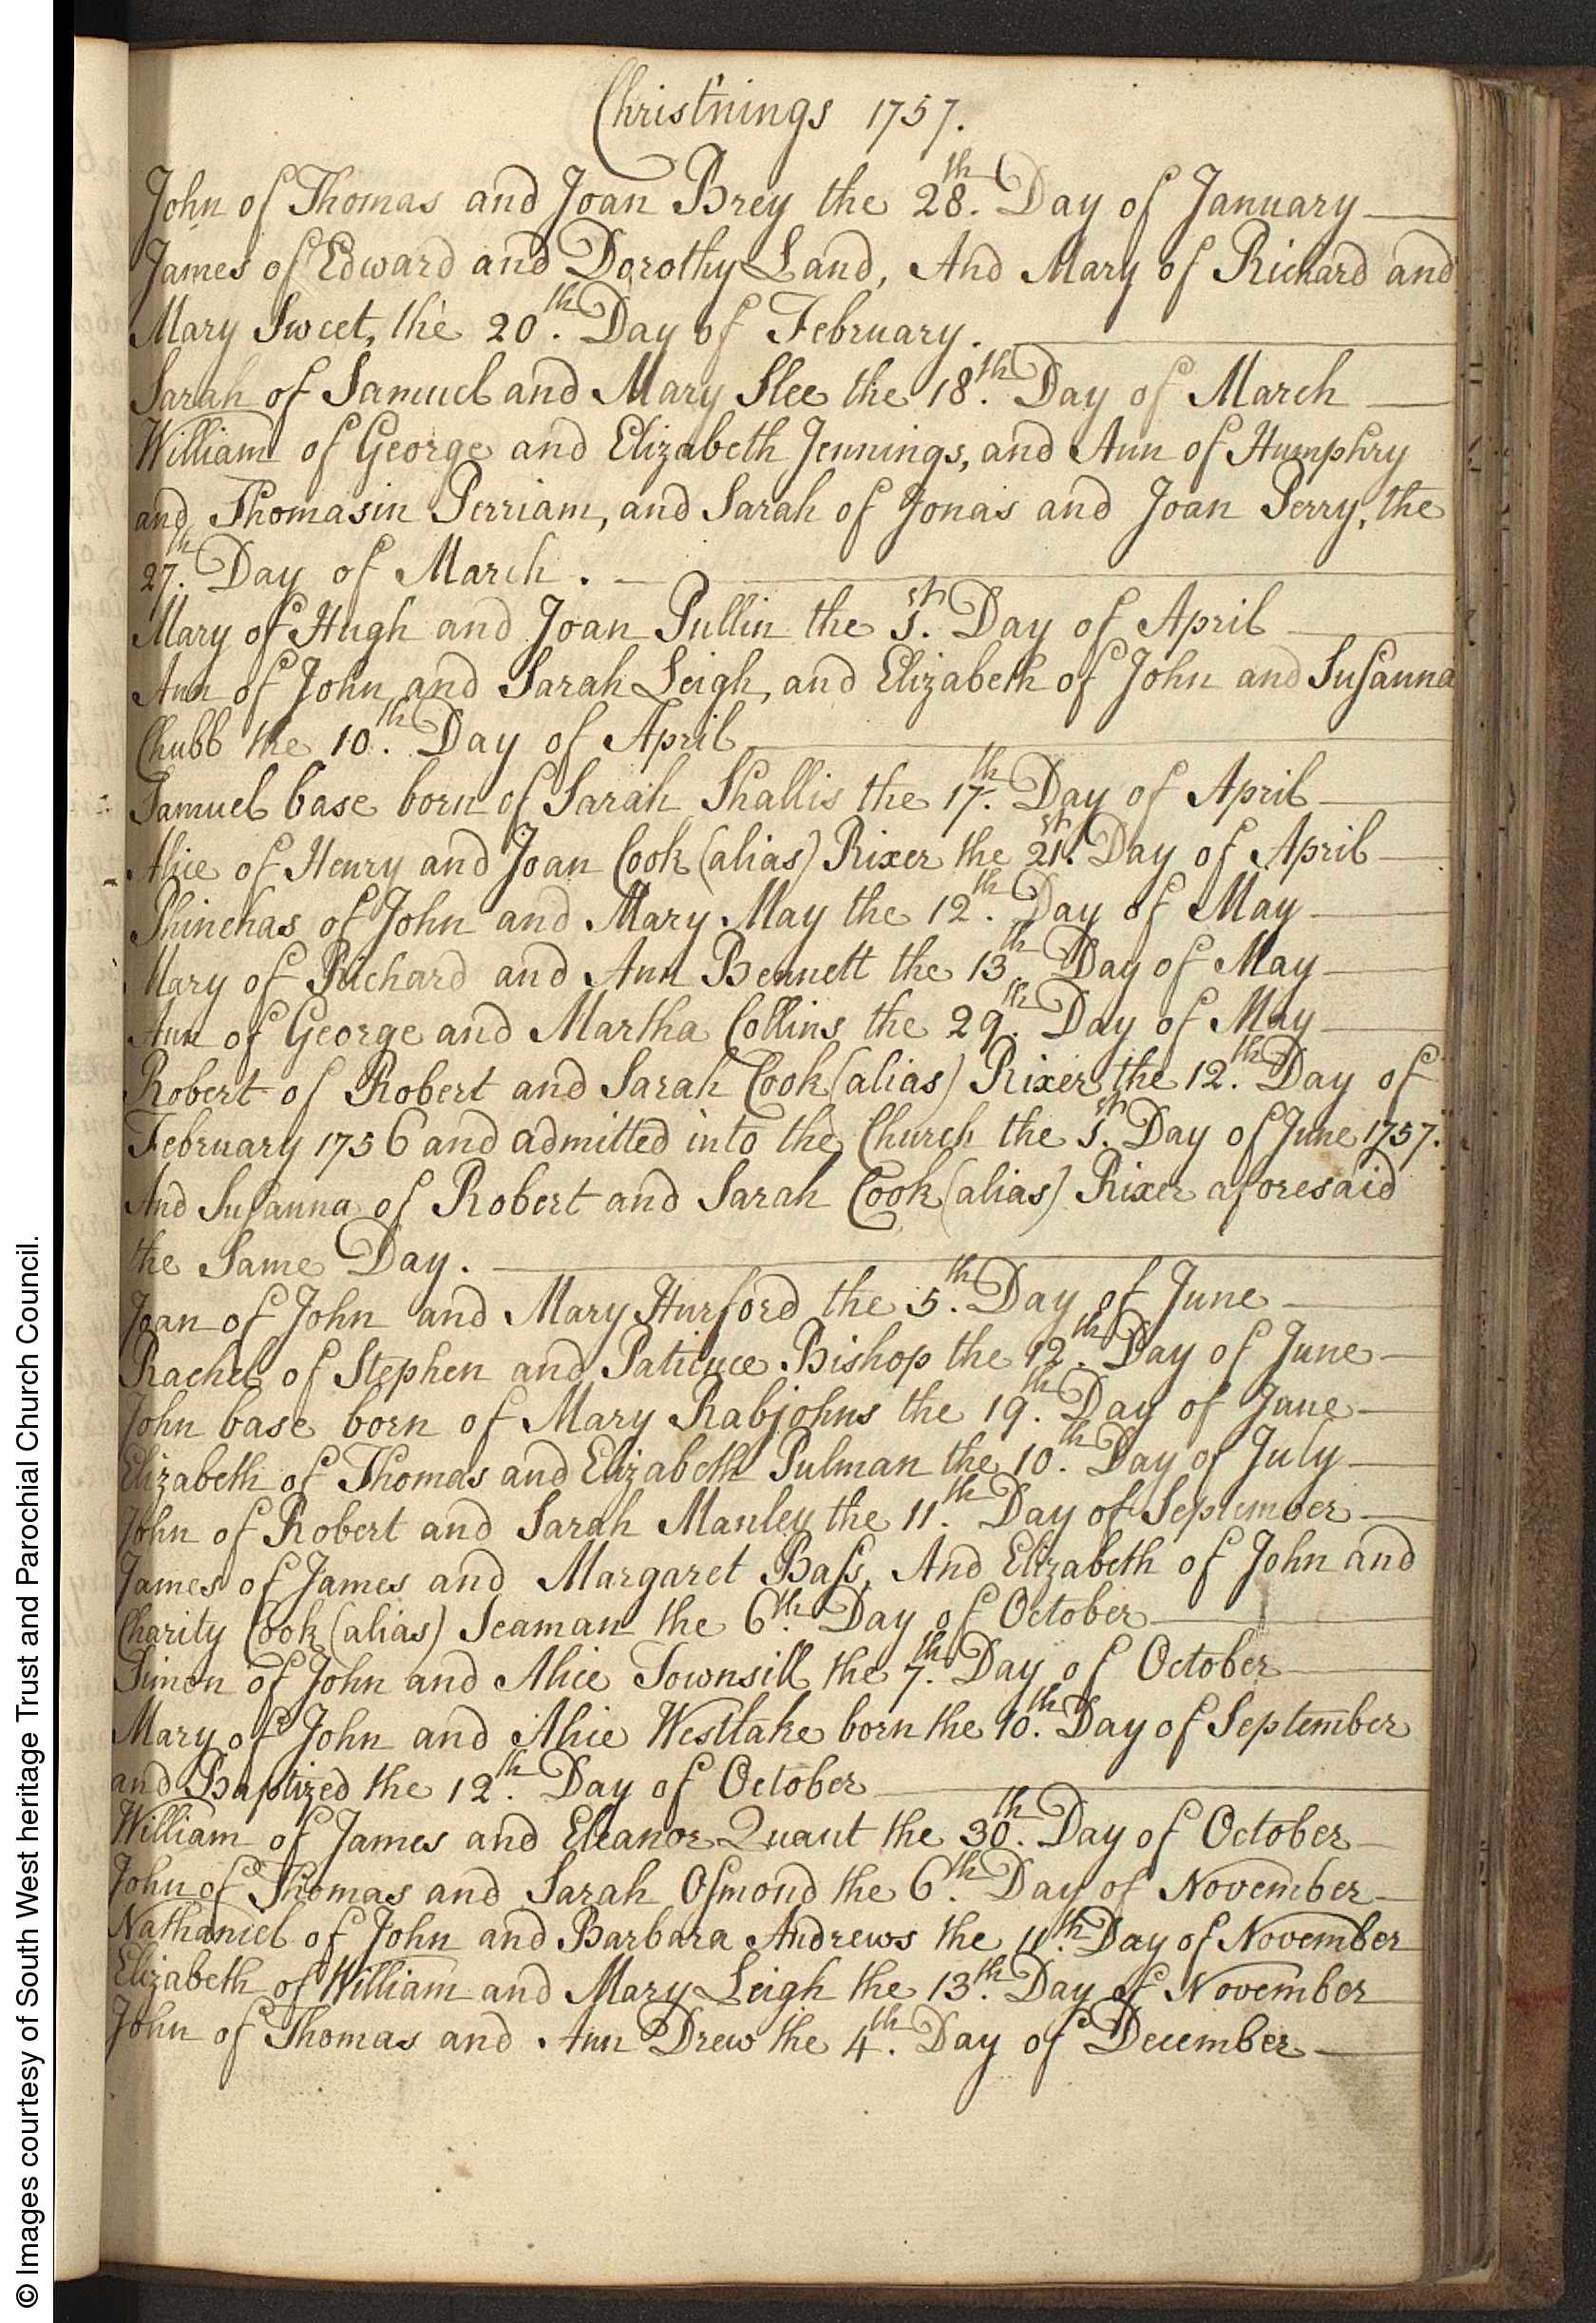 Christ'nings 1757.
John of Thomas and Joan Brey the 28.th Day of January
James of Edward and Dorothy Land, And Mary of Richard and
Mary Sweet, the 20.th Day of February.
Sarah of Samuel and Mary Slee the 18.th Day of March
William of George and Elizabeth Jennings, and Ann of Humphry
and Thomasin Perriam, and Sarah of Jonas and Joan Perry, the
27.th Day of March.
Mary of Hugh and Joan Pullin the 1.st Day of April
Ann of John and Sarah Leigh, and Elizabeth of John and Susanna
Chubb the 10.th Day of April
Samuel base born of Sarah Shallis the 17.th Day of April
Alice of Henry and Joan Cook (alias) Rixer the 21.st Day of April
Phinehas of John and Mary May the 12.th Day of May
Mary of Richard and Ann Bennett the 13.th Day of May
Ann of George and Martha Collins the 29.th Day of May
Robert of Robert and Sarah Cook (alias) Rixer, the 12.th Day of
February 1756 and admitted into the Church the 1.st Day of June 1757.
And Susanna of Robert and Sarah Cook (alias) Rixer aforesaid
the Same Day.
Joan of John and Mary Hurford the 5.th Day of June
Rachel of Stephen and Patience Bishop the 12.th Day of June
John base born of Mary Rabjohns the 19.th Day of June
Elizabeth of Thomas and Elizabeth Pulman the 10.th Day of July
John of Robert and Sarah Manley the 11.th Day of September
James of James and Margaret Bass, And Elizabeth of John and
Charity Cook (alias) Seaman the 6.th Day of October
Simon of John and Alice Townsill the 7.th Day of October
Mary of John and Alice Westlake born the 10.th Day of September
and Baptized the 12.th Day of October
William of James and Eleanor Quant the 30.th Day of October
John of Thomas and Sarah Osmond the 6.th Day of November
Nathaniel of John and Barbara Andrews the 11.th Day of November
Elizabeth of William and Mary Leigh the 13.th Day of November
John of Thomas and Ann Drew the 4.th Day of December
© Images courtesy of South West heritage Trust and Parochial Church Council.